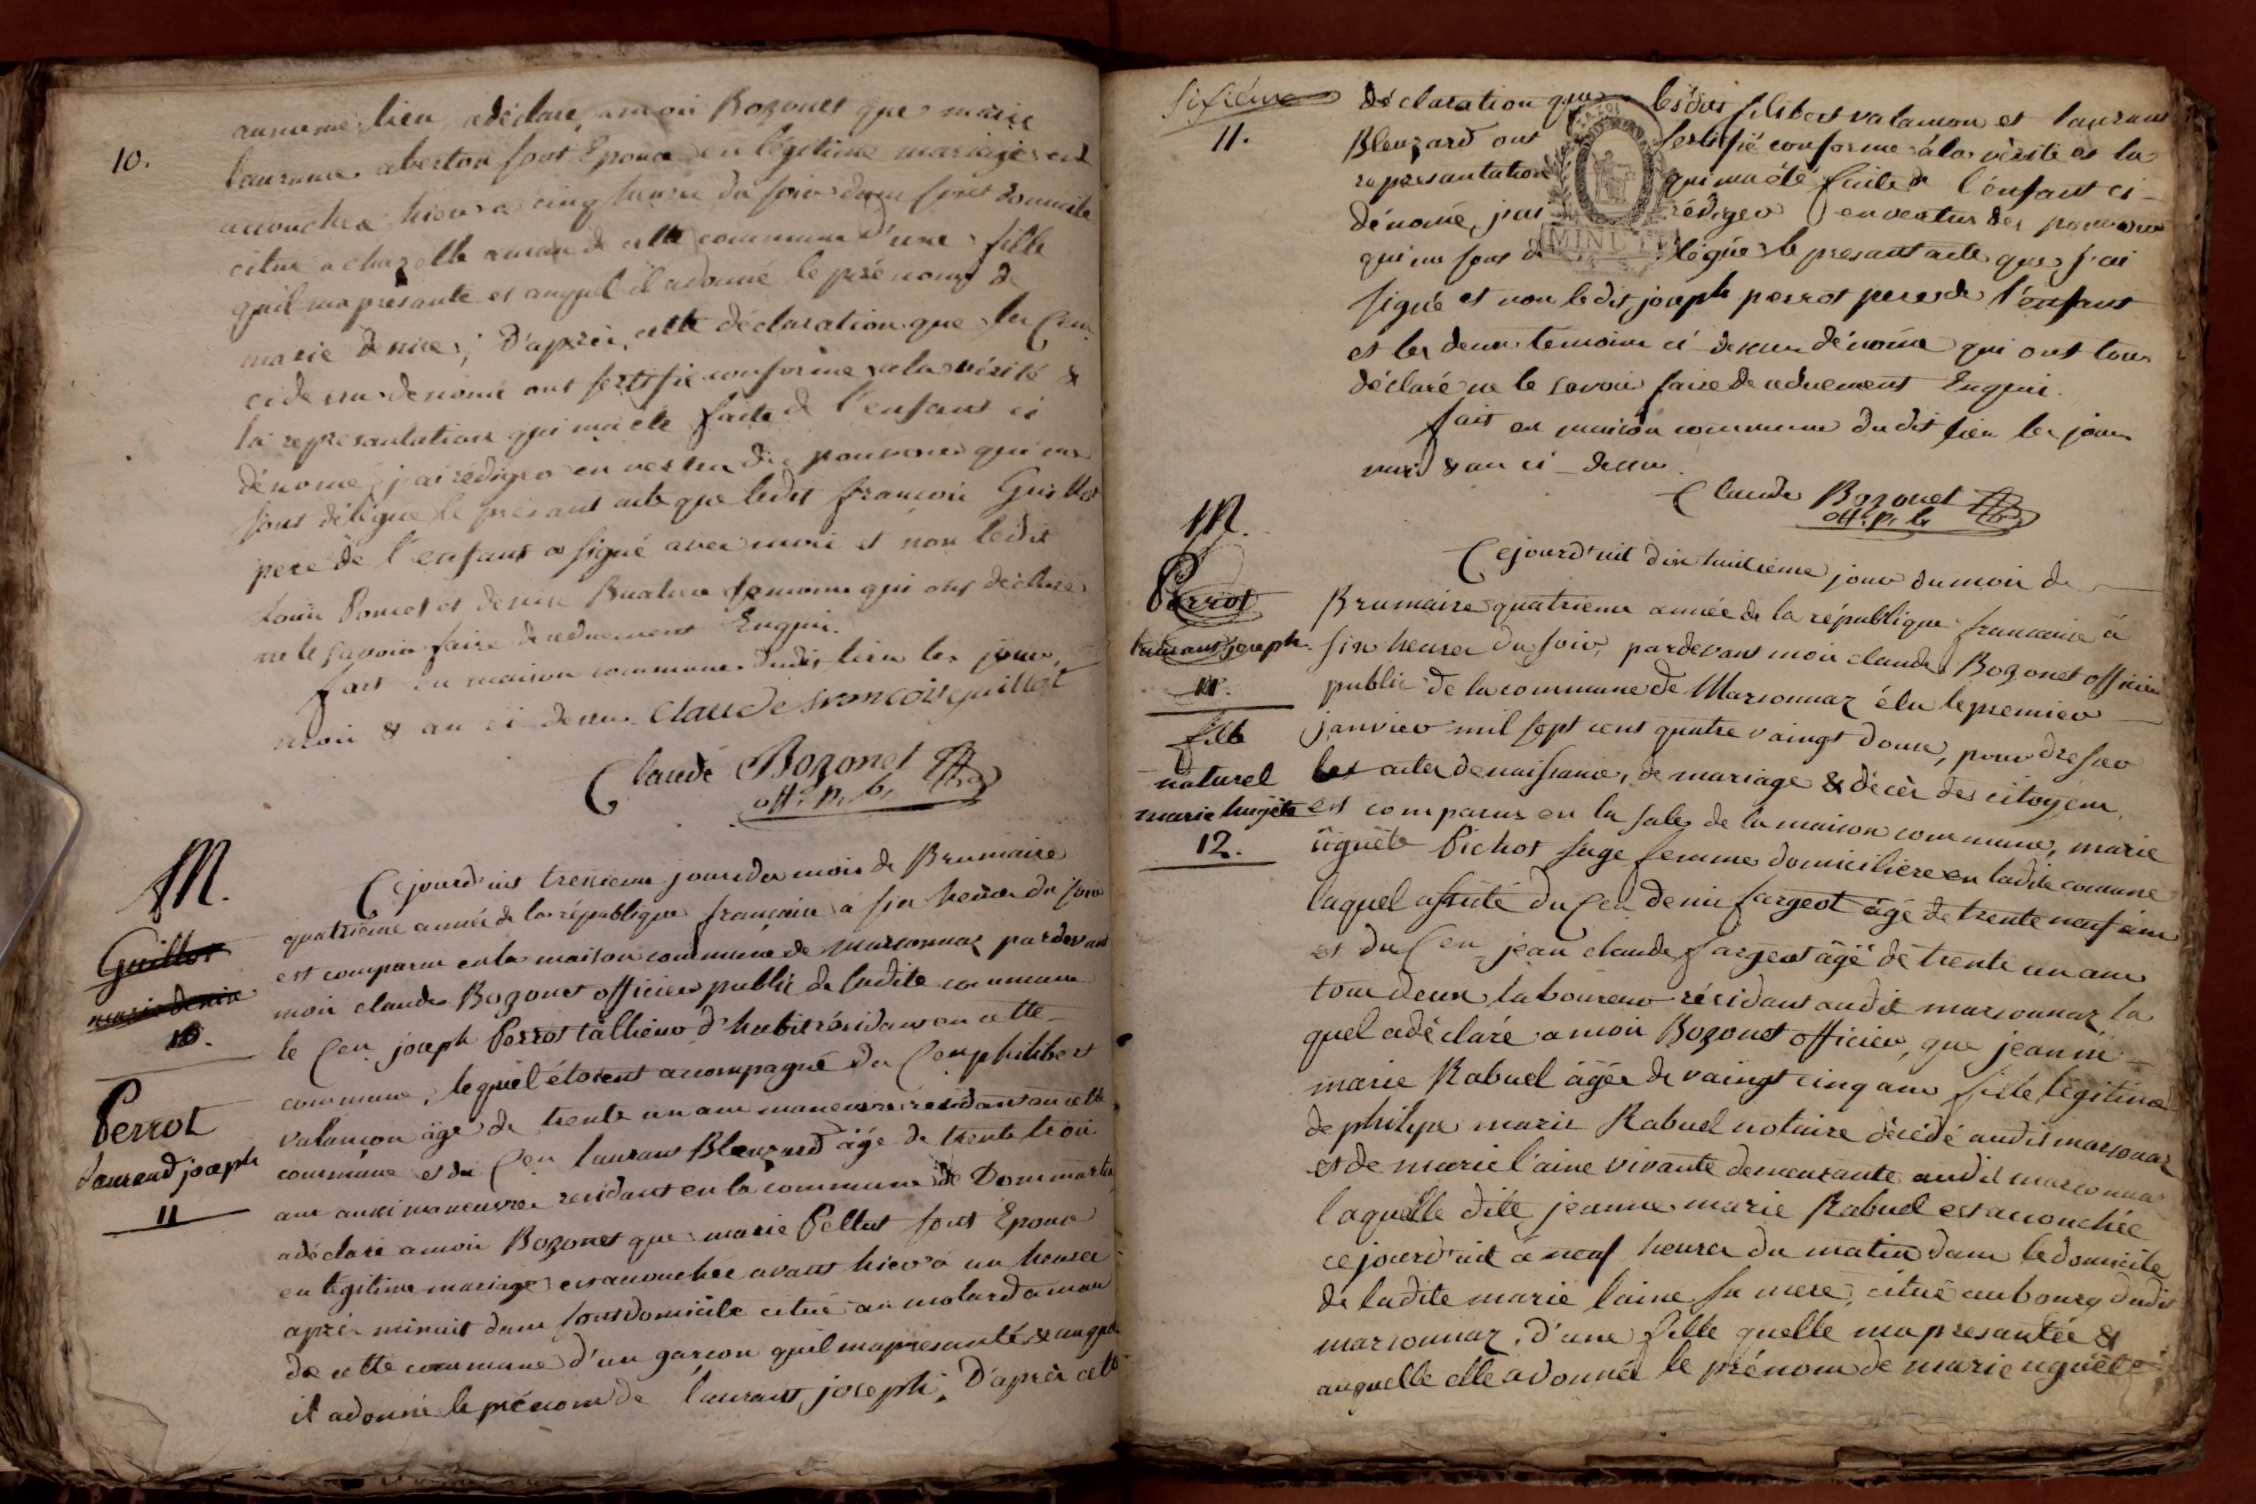 10.
au meme lieu, a déclaré a moi Bozonet que marie
laurance aberton sont Epouce en légitime mariage est
acouchee hier a cinq heures du soir dans sont domicile
citue a chazelle aman de cette commune d'une fille
quil ma présante et auquel il a donné le prénoms de
marie denise; D'après cette déclaration que les Cen
ci dessus denomé ont sertifie conforme a la vérité &
la représantation qui ma été faite de l'enfant ci
dénomé, j'ai rédigeo en vertu des pouvoires qui me
sont délégué le présant acte que ledit françois Guillot
pere de l'enfant a signé avec moi et non ledit
Louis Poncet et denis Buatier temoins qui ont déclaré
ne le savoir faire de aduement Enquis.
fait en maison commune dudit lieu les jour,
moi & an ci dessus. Claude francois guillot
Claude Bozonet
off. p. b.
M.
Guillot
marie denise
10.
Cejourd'uit treisieme jour du mois de Brumaire
quatrieme année de la république francaise à six heures du soir
est comparu en la maison commune de marsonnaz pardevant
moi claude Bozonet officier public de ladite commune
le Cen joseph Perrot tallieur d'habit résidant en cette
commune, lequel étoient accompagné du Cen philibert
valançon âgé de trente un ans maneuvre residant en cette
commune et du Cen laurant Blenzard âgé de trente trois
ans aussi maneuvre residant en la commune de Dommartin
a déclaré a moi Bozonet que marie Pellet sont Epouce
en légitime mariage est acouchée avant hier à un heures
après minuit dans sont domicile citué au molard aman
de cette commune d'un garcon quil ma présanté & auquel
il a donné le prénom de laurant joseph, D'après cette
Perrot
Laurand joseph
11
sixiéme
11.
déclaration que lesdits filibert valancon et laurant
Blenzard ont sertifié conforme à la vérité et la
représantation qui ma été faite de l'enfant ci-
dénomé, jai rédigeo en vertus des pouvoires
qui me sont délégué le presant acte que j'ai
signé et non ledit joseph perrot pere de l'enfant
et les deux temoins ci dessus dénomé qui ont tous
déclaré ne le savoir faire de aduement Enquis.
fait en maison commune dudit lieu les jour
moi & an ci-dessus.
MINUTE
Claude Bozonet
off. p. b.
M.
Perrot
laurant joseph
11.
fille
naturel
marie hugete
12.
Cejourd'uit dix huitieme jour du mois de
Brumaire quatrieme année de la république francaise à
six heures du soir, pardevant moi claude Bozonet officier
public de la commune de Marsonnaz élu le premier
janvier mil sept cent quatre vaingt douze, pour dresser
les actes de naissance, de mariage & décès des citoyens,
est comparus en la sale de la maison commune, marie
uguète Pichot sage femme domiciliere en ladite comune
laquel assisté du Cen denis fargeot âgé de trente neuf ans
et du Cen jean claude fargeot âgé de trente un ans
tous deux laboureur résidant audit marsonnaz la
quel a déclaré a moi Bozonet officier, que jeanne
marie Rabuel âgée de vaingt cinq ans fille légitime
de philipe marie Rabuel notaire décédé audit marsonnaz
et de marie l'aine vivante demeurante audit marsonnaz
laquelle dite jeanne marie Rabuel est acouchée
ce jourd'uit à neuf heures du matin dans le domicile
de ladite marie laine sa mere, citué au bourg dudit
marsonnaz, d'une fille quelle ma presantée &
auquelle elle a donnée le prénom de marie uguète